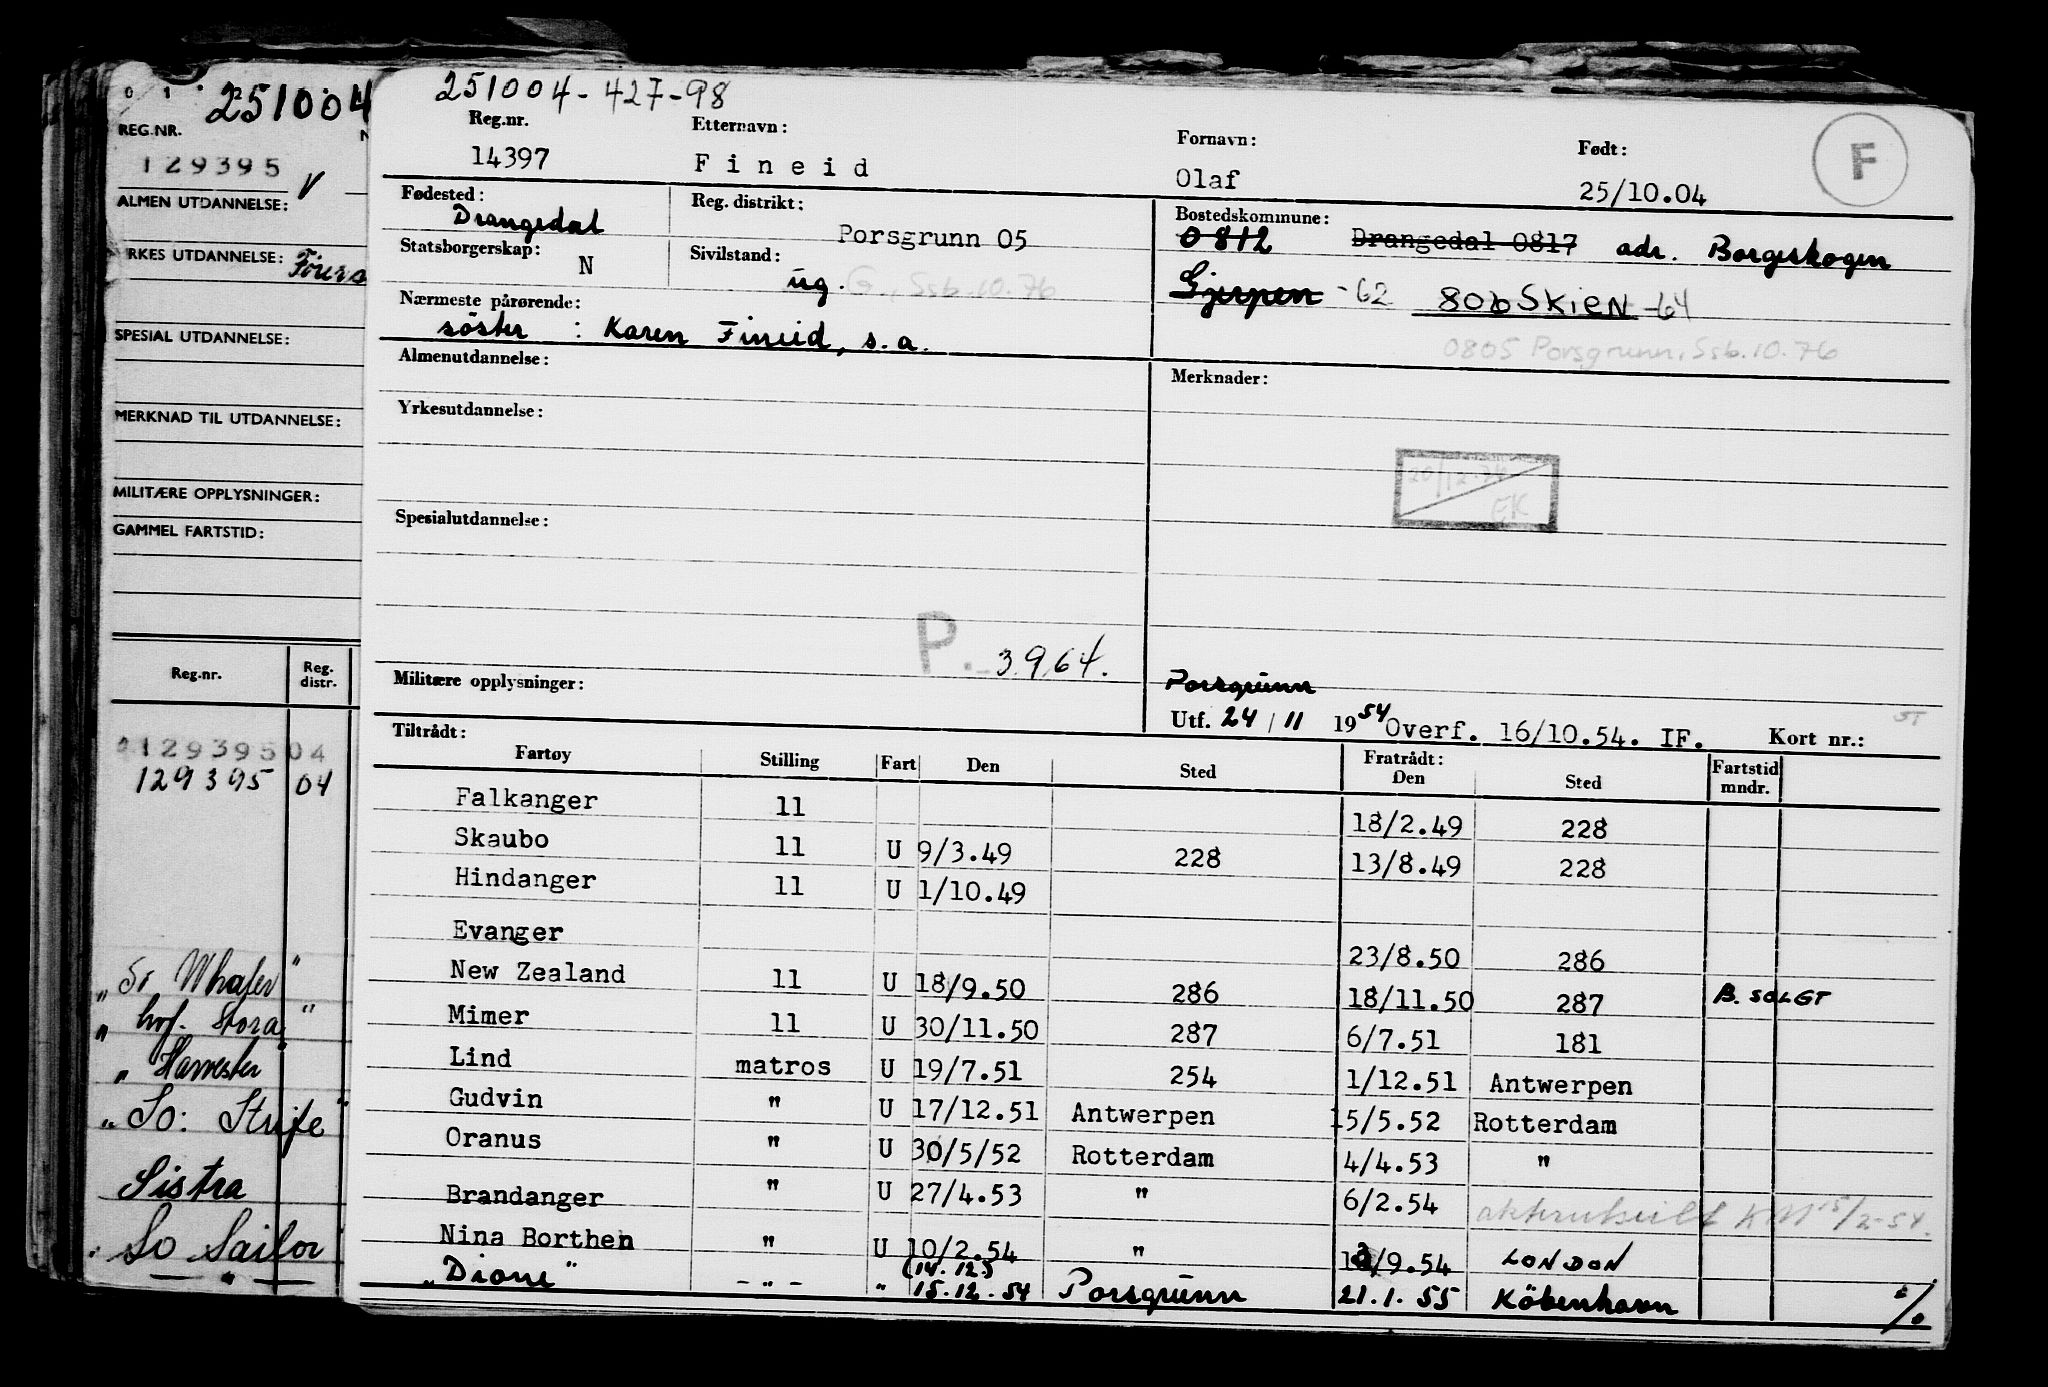 251004
REG.NR.
129395 V
ALMEN UTDANNELSE:
YRKES UTDANNELSE:
SPESIAL UTDANNELSE:
MERKNAD TIL UTDANNELSE:
MILITÆRE OPPLYSNINGER:
GAMMEL FARTSTID:
Reg.nr. Reg. distr.
129395 04
129395 04
" So Whaler "
" hvf. Stora "
" Harvester
" So: Strife "
Sistra
" So Sailor
251004-427-98
Reg.nr. Etternavn: Fornavn: Født: F
14397 Fineid Olaf 25/10.04
Fødested: Reg. distrikt: Bostedskommune:
Drangedal Porsgrunn 05 0812 Drangedal 0817 adr. Borgeskogen
Statsborgerskap: Sivilstand:
N ug. G., Ssb.10.76 Gjerpen -62 806 SKIEN -64
Nærmeste pårørende:
søster : Karen Fineid, s.a.
0805 Porsgrunn, Ssb.10.76
Almenutdannelse: Merknader:
Yrkesutdannelse:
20/12-74
EK
Spesialutdannelse:
P. 3964.
Militære opplysninger: Porsgrunn
Utf. 24/11 1954 Overf. 16/10.54. IF. Kort nr.:
Tiltrådt: Fratrådt:
Fartøy Stilling Fart Den Sted Den Sted Fartstid mndr.
Falkanger 11 18/2.49 228
Skaubo 11 U 9/3.49 228 13/8.49 228
Hindanger 11 U 1/10.49
Evanger 23/8.50 286
New Zealand 11 U 18/9.50 286 18/11.50 287 B. SOLGT
Mimer 11 U 30/11.50 287 6/7.51 181
Lind matros U 19/7.51 254 1/12.51 Antwerpen
Gudvin " U 17/12.51 Antwerpen 15/5.52 Rotterdam
Oranus " U 30/5/52 Rotterdam 4/4.53 "
Brandanger " U 27/4.53 " 6/2.54 KM 15/2-54.
Nina Borthen " U 10/2.54 " /9.54 LONDON
"Dione" - " - " (14.12.) 15.12.54 Porsgrunn 21.1.55 København